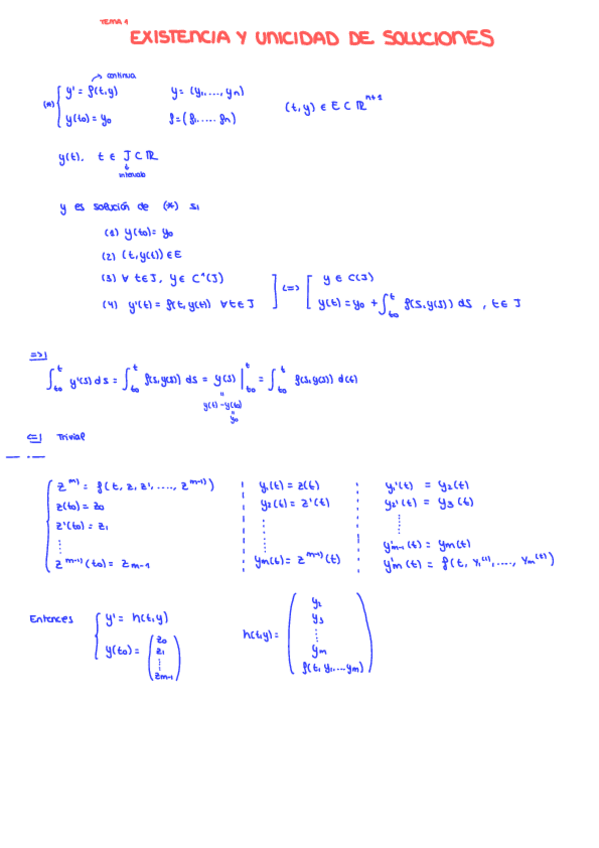 TEMA 1
EXISTENCIA Y UNICIDAD DE SOLUCIONES
→ continua
(*) { y' = f(t,y)    y = (y₁,...,yₙ)    (t,y) ∈ E ⊂ ℝⁿ⁺¹
y(t₀) = y₀    f = (f₁.....fₙ)
y(t). t ∈ J ⊂ ℝ
↓
intervalo
y es solución de (*) si
(1) y(t₀) = y₀
(2) (t,y(t)) ∈ E
(3) ∀ t∈J, y ∈ C¹(J)
(4) y'(t) = f(t,y(t)) ∀t∈J
] <=> [ y ∈ C(J)
y(t) = y₀ + ∫_{t₀}^{t} f(s,y(s)) ds , t ∈ J
=>|
∫_{t₀}^{t} y'(s) ds = ∫_{t₀}^{t} f(s,y(s)) ds = y(s) |_{t₀}^{t} = ∫_{t₀}^{t} f(s,y(s)) d(s)
=
y(t) - y(t₀)
=
y₀
<=| Trivial
{ z^{m)} = f(t, z, z', ...., z^{m-1)})    y₁(t) = z(t)    y₁'(t) = y₂(t)
z(t₀) = z₀    y₂(t) = z'(t)    y₂'(t) = y₃(t)
z'(t₀) = z₁    ⋮    ⋮
⋮    ⋮    y'ₘ₋₁(t) = yₘ(t)
z^{m-1)}(t₀) = zₘ₋₁    yₘ(t) = z^{m-1)}(t)    y'ₘ(t) = f(t, y₁^{(t)},...., yₘ^{(t)})
Entonces { y' = h(t,y)
y(t₀) = (z₀
z₁
⋮
zₘ₋₁)
h(t,y) = (y₂
y₃
⋮
yₘ
f(t, y₁,...yₘ))